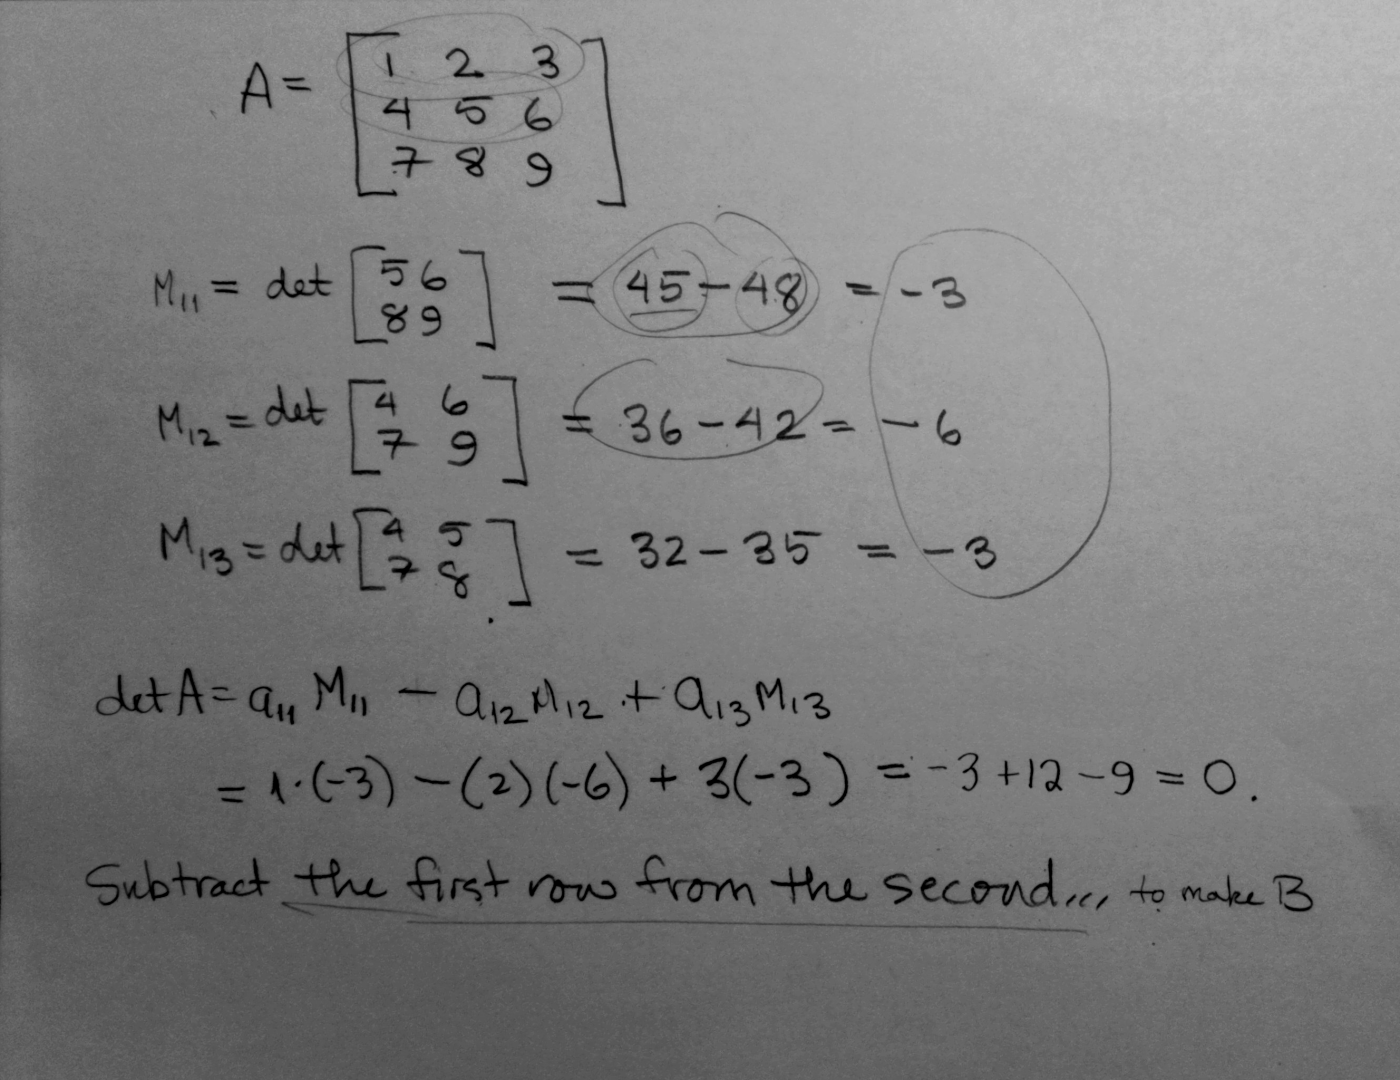 A = [1 2 3
4 5 6
7 8 9]
M₁₁ = det [5 6
8 9] = 45 - 48 = -3
M₁₂ = det [4 6
7 9] = 36 - 42 = -6
M₁₃ = det [4 5
7 8] = 32 - 35 = -3
det A = a₁₁ M₁₁ - a₁₂ M₁₂ + a₁₃ M₁₃
= 1·(-3) - (2)(-6) + 3(-3) = -3 + 12 - 9 = 0.
Subtract the first row from the second... to make B